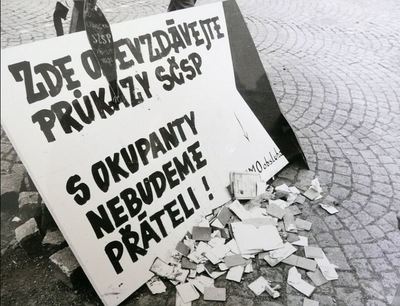 SČSP
ZDE ODEVZDÁVEJTE
PRŮKAZY SČSP
S OKUPANTY
NEBUDEME
PŘÁTELI!